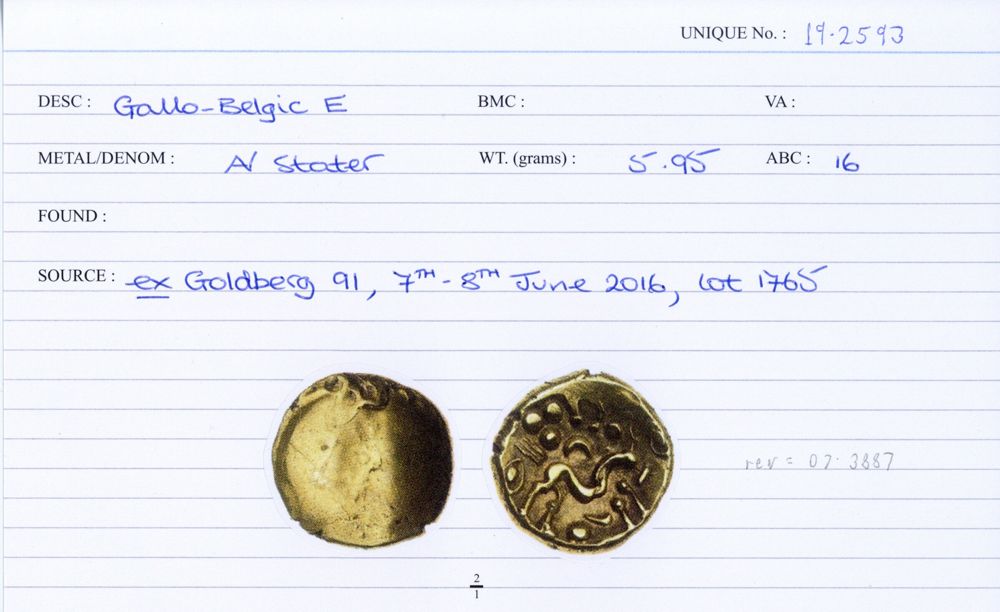 UNIQUE No. : 19.2593
DESC : Gallo-Belgic E BMC : VA :
METAL/DENOM : A/ Stater WT. (grams) : 5.95 ABC : 16
FOUND :
SOURCE : ex Goldberg 91, 7TH - 8TH June 2016, lot 1765
rev = 07.3887
2
1